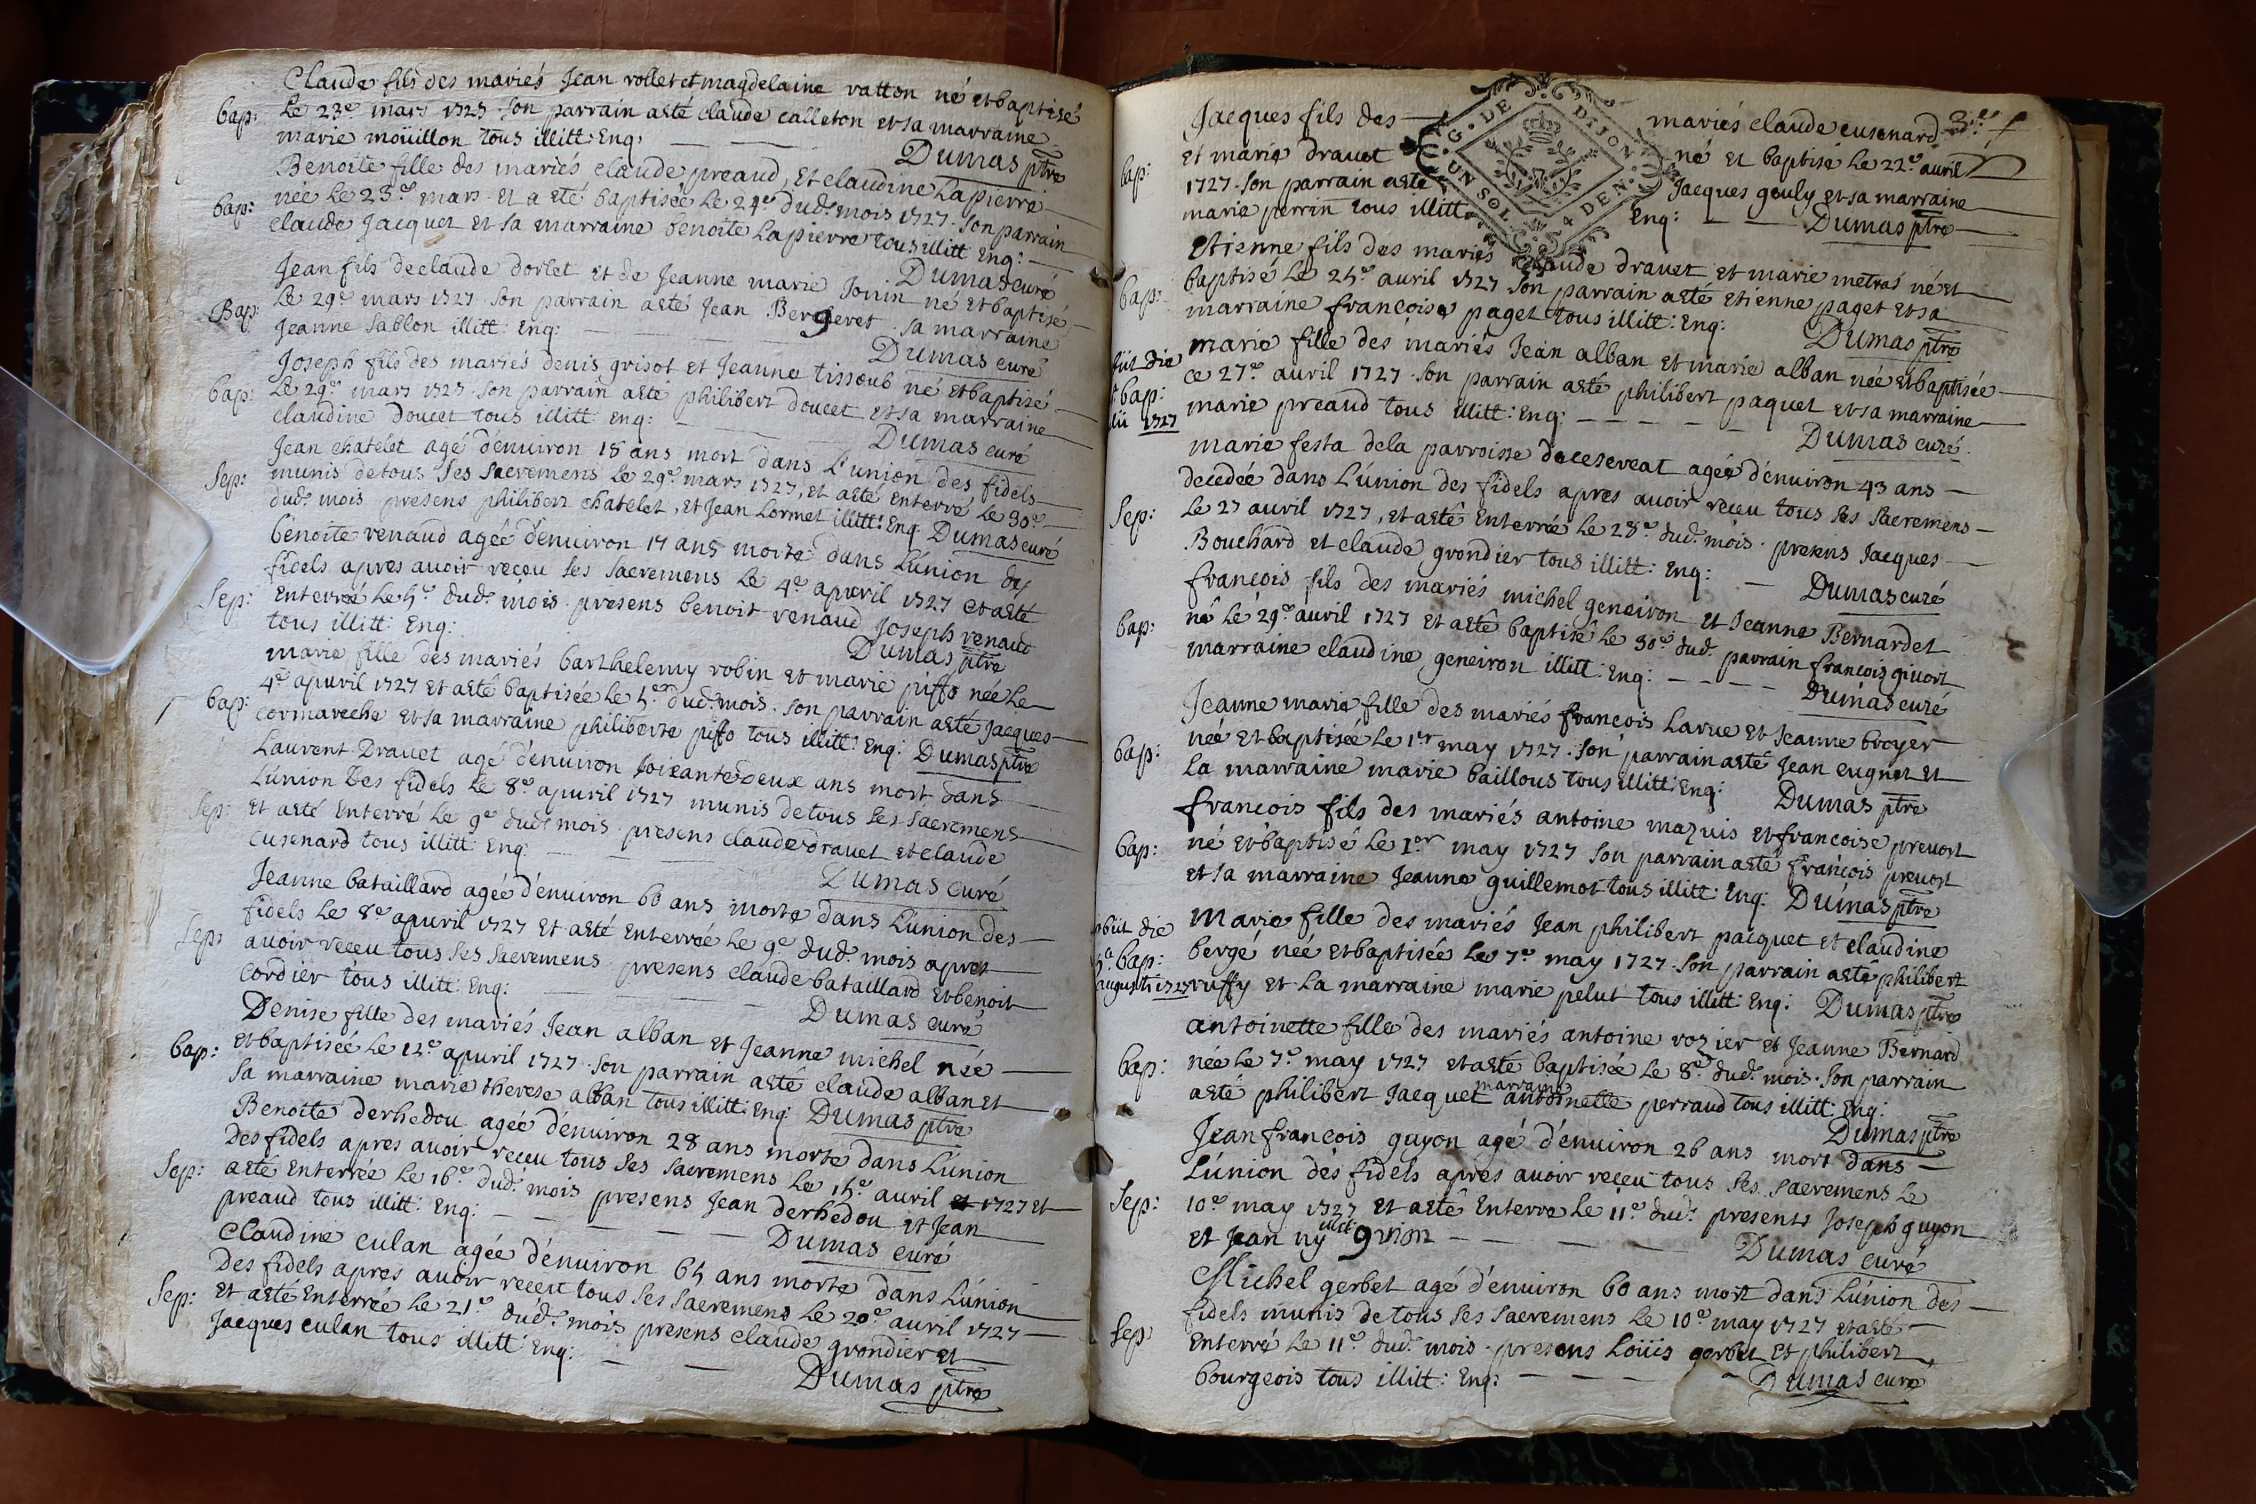 Claude fils des mariés Jean rollet et magdelaine vatton né et baptisé
bap: Le 23e mars 1727 son parrain a esté claude calleton et sa marraine
marie moüillon tous illitt: Enq:
Dumas ptre
Benoite fille des mariés claude preaud, Et claudine Lapierre
née Le 23e mars Et a esté baptisée Le 24e dud: mois 1727 son parrain
bap: claude Jacquet Et sa marraine benoite Lapierre tous illitt Enq:
Dumas curé
Jean fils de claude dorlet et de Jeanne marie Jonin né et baptisé
Bap: Le 29e mars 1727 son parrain a esté Jean Bergeret sa marraine
Jeanne sablon illitt: Enq:
Dumas curé
Joseph fils des mariés denis grisot et Jeanne tissoub né Et baptisé
bap: Le 29e mars 1727 son parrain a esté philibert doucet et sa marraine
claudine doucet tous illitt: Enq:
Dumas curé
Jean chatelet agé d'enuiron 18 ans mort dans L'union des fidels
Sep: munis de tous ses sacremens Le 29e mars 1727, Et a esté Enterré Le 30e
dud: mois presens philibert chatelet, Et Jean Lormet illitt: Enq Dumas curé
benoite renaud agée d'enuiron 17 ans morte dans L'union des
fidels apres auoir receu ses sacremens Le 4e apuril 1727 et a esté
Sep: Enterrée Le 5e dud: mois presens benoit renaud Joseph renaud
tous illitt: Enq:
Dumas ptre
marie fille des mariés barthelemy robin et marie piffo née Le
4e apuril 1727 Et a esté baptisée Le 5e dud: mois son parrain a esté Jacques
bap: cormareche Et sa marraine philiberte piffo tous illitt: Enq: Dumas ptre
Laurent Drauet agé d'enuiron soixante deux ans mort dans
L'union des fidels Le 8e apuril 1727 munis de tous ses sacremens
Sep: Et a esté Enterré Le 9e dud: mois presens claude drauet et claude
cusenard tous illitt: Enq:
Dumas curé
Jeanne bataillard agée d'enuiron 60 ans morte dans L'union des
fidels Le 8e apuril 1727 Et a esté Enterrée Le 9e dud: mois apres
Sep: auoir receu tous ses sacremens presens claude bataillard et benoit
cordier tous illitt: Enq:
Dumas curé
Denise fille des mariés Jean alban et Jeanne michel née
bap: Et baptisée Le 12e apuril 1727 son parrain a esté claude alban et
sa marraine marie therese alban tous illitt: Enq: Dumas ptre
Benoite derhedou agée d'enuiron 28 ans morte dans L'union
Des fidels apres auoir receu tous ses sacremens Le 15e auril 1727 Et
Sep: a esté Enterrée Le 16e dud: mois presens Jean derhedou et Jean
preaud tous illitt: Enq:
Dumas curé
claudine culan agée d'enuiron 65 ans morte dans L'union
Des fidels apres auoir receu tous ses sacremens Le 20e auril 1727
Sep: Et a esté Enterrée Le 21e dud: mois presens claude grondier et
Jacques culan tous illitt: Enq:
Dumas ptre
G. DE DIJON
UN SOL 4 DEN.
Jacques fils des mariés claude cusenard
bap: Et marie drauet né Et baptisé Le 22e auril
1727 son parrain a esté Jacques gouly et sa marraine
marie perrin tous illitt Enq: Dumas ptre
Etienne fils des mariés claude drauet et marie metras né et
bap: baptisé Le 25e auril 1727 son parrain a esté etienne paget et sa
marraine françoise paget tous illitt: Enq:
Dumas ptre
marie fille des mariés Jean alban Et marie alban née et baptisée
bap: ce 27e auril 1727 son parrain a esté philibert paquet et sa marraine
1727 marie preaud tous illitt: Enq:
Dumas curé
marie festa de la parroisse agée d'enuiron 43 ans
decedée dans L'union des fidels apres auoir receu tous ses sacremens
Sep: Le 27 auril 1727, et a esté Enterrée Le 28e dud: mois presens Jacques
Bouchard et claude grondier tous illitt: Enq:
Dumas curé
françois fils des mariés michel geneiron et Jeanne Bernardet
bap: né Le 29e auril 1727 Et a esté baptisé Le 30e dud: parrain françois giuort
marraine claudine geneiron illitt: Enq:
Dumas curé
Jeanne marie fille des mariés francois Larue Et Jeanne broyer
bap: née Et baptisée Le 1er may 1727 son parrain a esté Jean cugnet Et
La marraine marie baillous tous illitt: Enq:
Dumas ptre
françois fils des mariés antoine mazuis et francoise preuost
bap: né Et baptisé Le 1er may 1727 son parrain a esté françois preuost
et sa marraine Jeanne guillemot tous illitt: Enq: Dumas ptre
obiit die marie fille des mariés Jean philibert pacquet et claudine
bap: bergé née et baptisée Le 7e may 1727 son parrain a esté philibert
augusti 1727 ruffy et La marraine marie pelut tous illitt: Enq: Dumas ptre
antoinette fille des mariés antoine rozier et Jeanne Bernard
bap: née Le 7e may 1727 et a esté baptisée Le 8e dud: mois son parrain
a esté philibert Jacquet marraine antoinette perraud tous illitt: Enq:
Dumas ptre
Jean francois guyon agé d'enuiron 26 ans mort dans
L'union des fidels apres auoir receu tous ses sacremens Le
Sep: 10e may 1727 et a esté Enterré Le 11e dud: presents Joseph guyon
et Jean
Dumas curé
Michel gerbet agé d'enuiron 60 ans mort dans L'union des
fidels munis de tous ses sacremens Le 10e may 1727 et a esté
Sep: Enterré Le 11e dud: mois presens Loüis gerbet Et philibert
bourgeois tous illitt: Enq:
Dumas curé